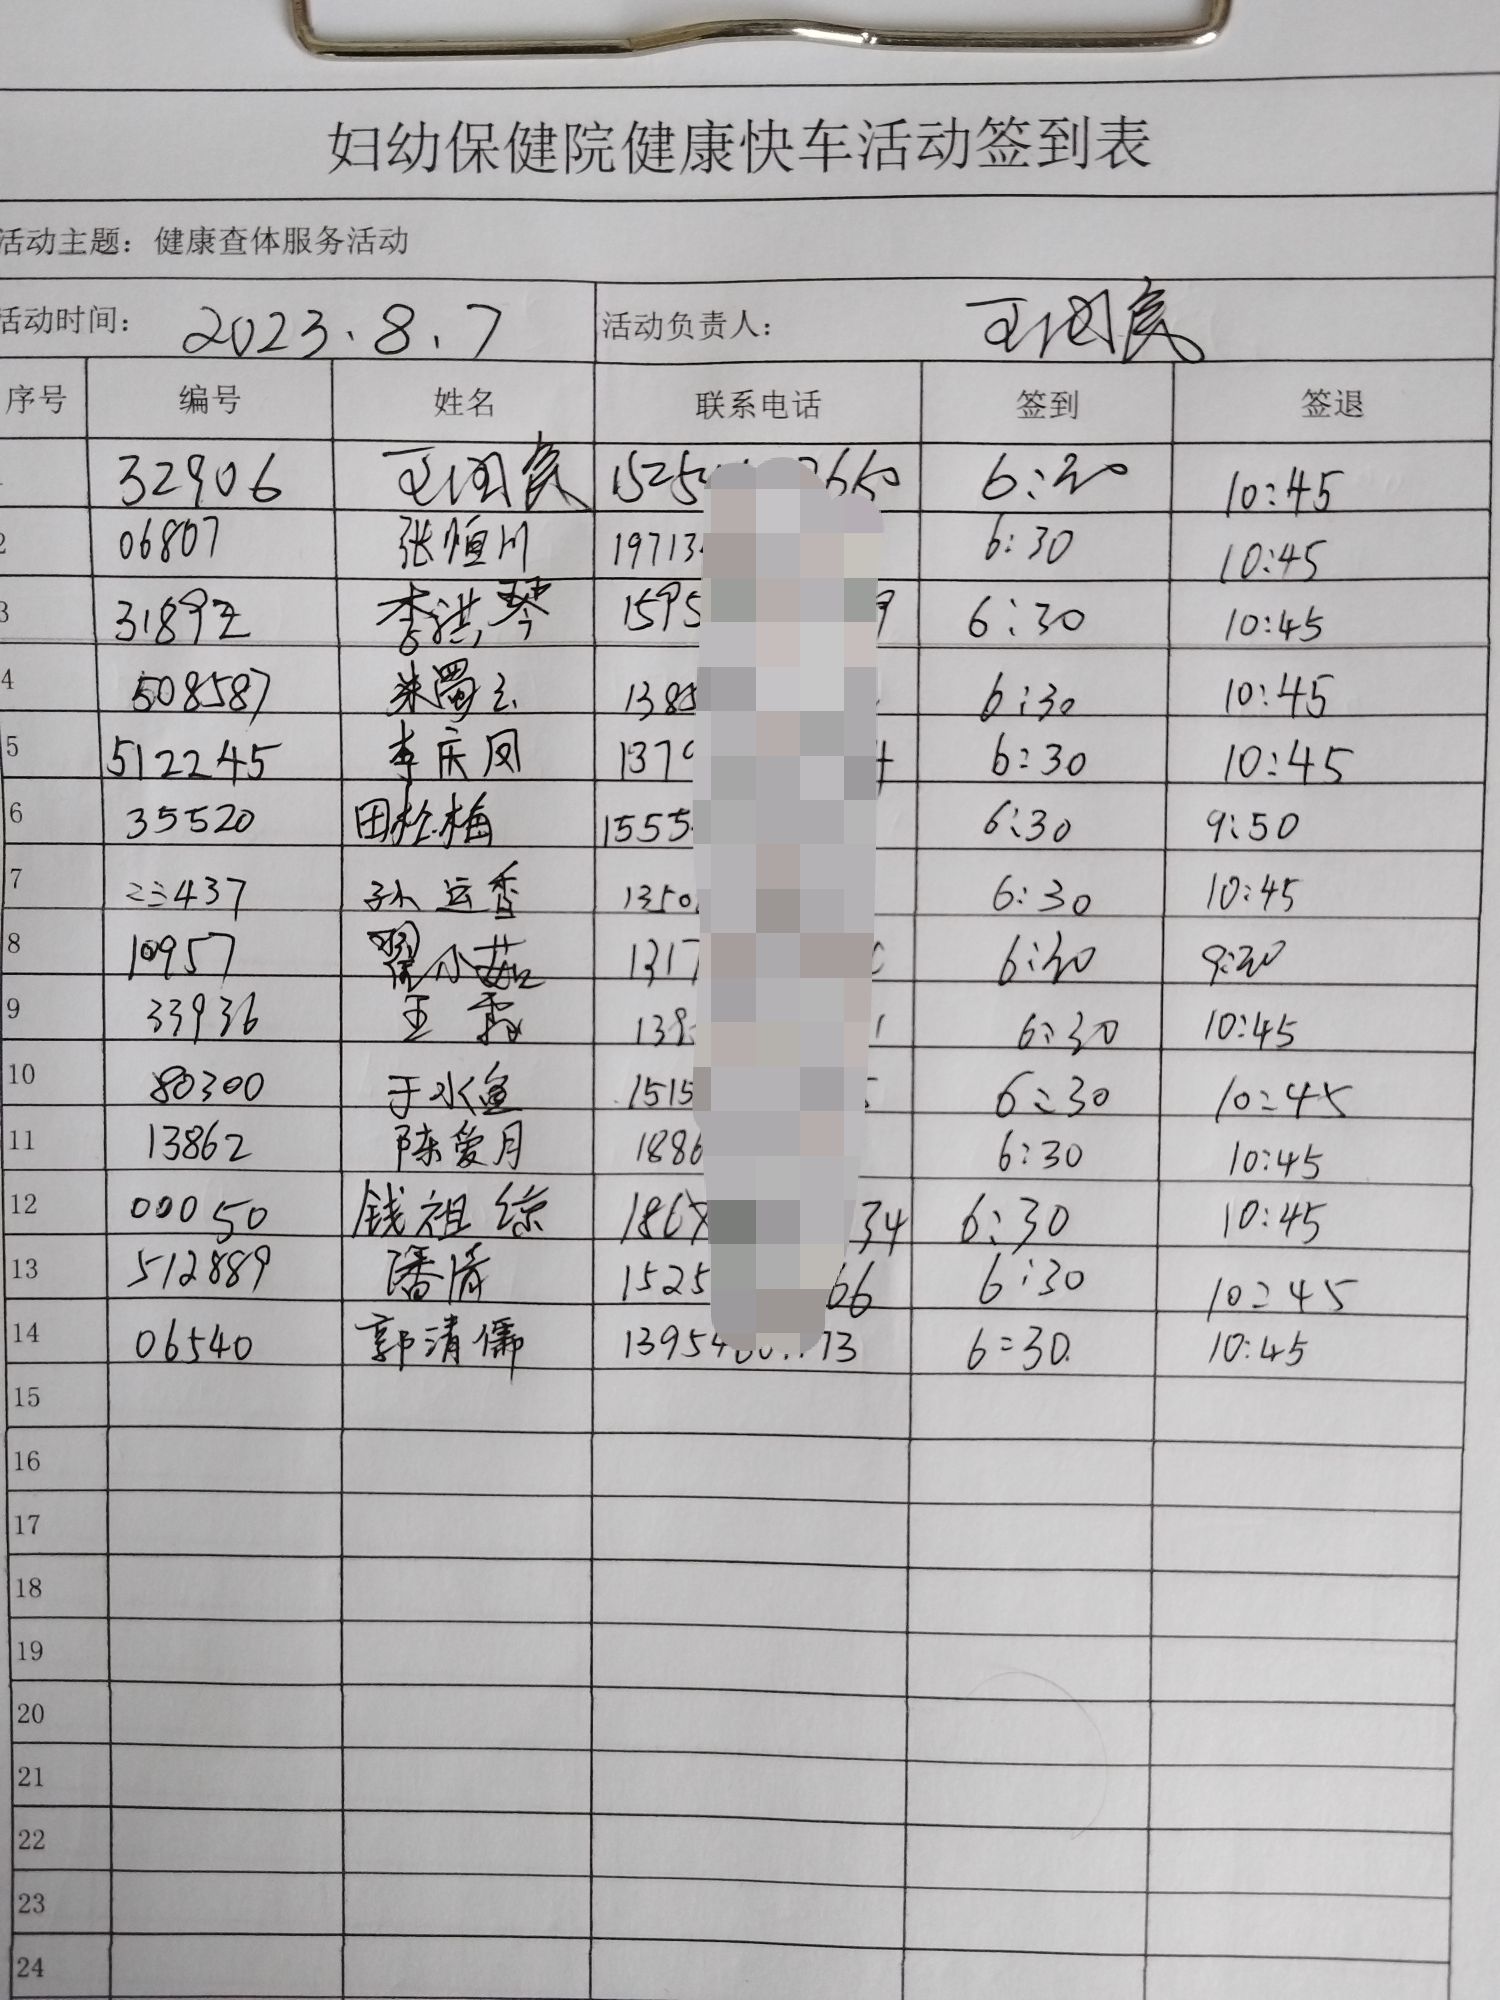 妇幼保健院健康快车活动签到表
活动主题：健康查体服务活动
活动时间： 2023.8.7 活动负责人： 王国良
序号 编号 姓名 联系电话 签到 签退
32906 王国良 1525 6:30 10:45
2 06807 张恒川 19713 6:30 10:45
3 31892 李洪琴 1595 9 6:30 10:45
4 508587 朱蜀云 1385 6:30 10:45
5 512245 李庆凤 1379 4 6:30 10:45
6 35520 田松梅 1555 6:30 9:50
7 33437 孙运香 1350 6:30 10:45
8 10957 翟小茹 1317 6:30 9:30
9 33936 王霞 139 1 6:30 10:45
10 80300 于水鱼 1515 6:30 10:45
11 13862 陈爱月 1886 6:30 10:45
12 00050 钱祖综 186 34 6:30 10:45
13 512889 潘清 1525 66 6:30 10:45
14 06540 郭清儒 1395 73 6:30 10:45
15
16
17
18
19
20
21
22
23
24